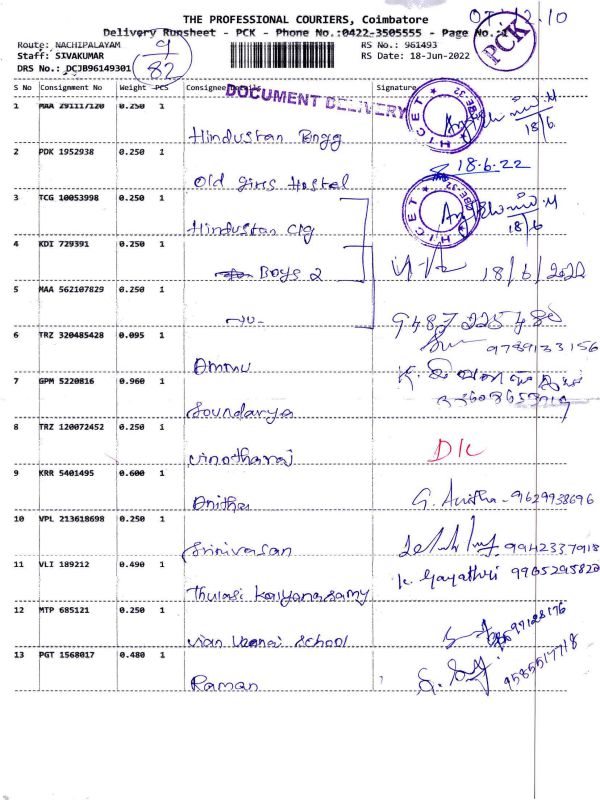 THE PROFESSIONAL COURIERS, Coimbatore
Delivery Runsheet - PCK - Phone No.:0422-3505555 - Page No.:1
Route: NACHIPALAYAM
RS No.: 961493
PCK
Staff: SIVAKUMAR
RS Date: 18-Jun-2022
DRS No.: DCJB96149301
9
82
S No Consignment No Weight PCS Consignee Details Signature
DOCUMENT DELIVERY
1 MAA 291117120 0.250 1 Hindustan Engg
HICET
18/6
2 PDK 1952938 0.250 1 Old girls Hostel
18.6.22
3 TCG 10053998 0.250 1 Hindustan clg
HICET
18/6
4 KDI 729391 0.250 1 Boys 2
18/6/2022
5 MAA 562107829 0.250 1
9487225480
6 TRZ 320485428 0.095 1 Ammu
9789133156
7 GPM 5220816 0.960 1 Soundarya
8 TRZ 120072452 0.250 1 Vinotharaj
D/C
9 KRR 5401495 0.600 1 Anitha
G. Anitha - 9629938696
10 VPL 213618698 0.250 1 Srinivasan
9942337918
11 VLI 189212 0.490 1 Thulasi Kalyanasamy
K. Gayathri 9965295820
12 MTP 685121 0.250 1 School
13 PGT 1568017 0.480 1 Raman
9585517718